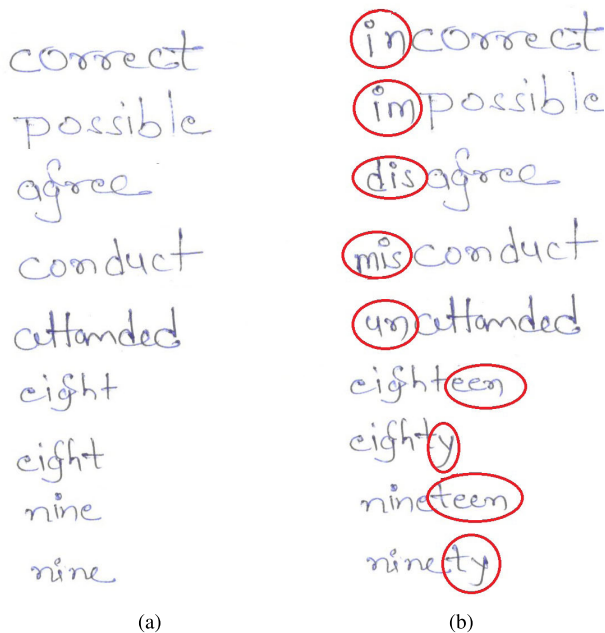 correct
possible
agree
conduct
attamded
eight
eight
nine
nine
(a)
incorrect
impossible
disagree
misconduct
unattamded
eighteen
eighty
nineteen
ninety
(b)